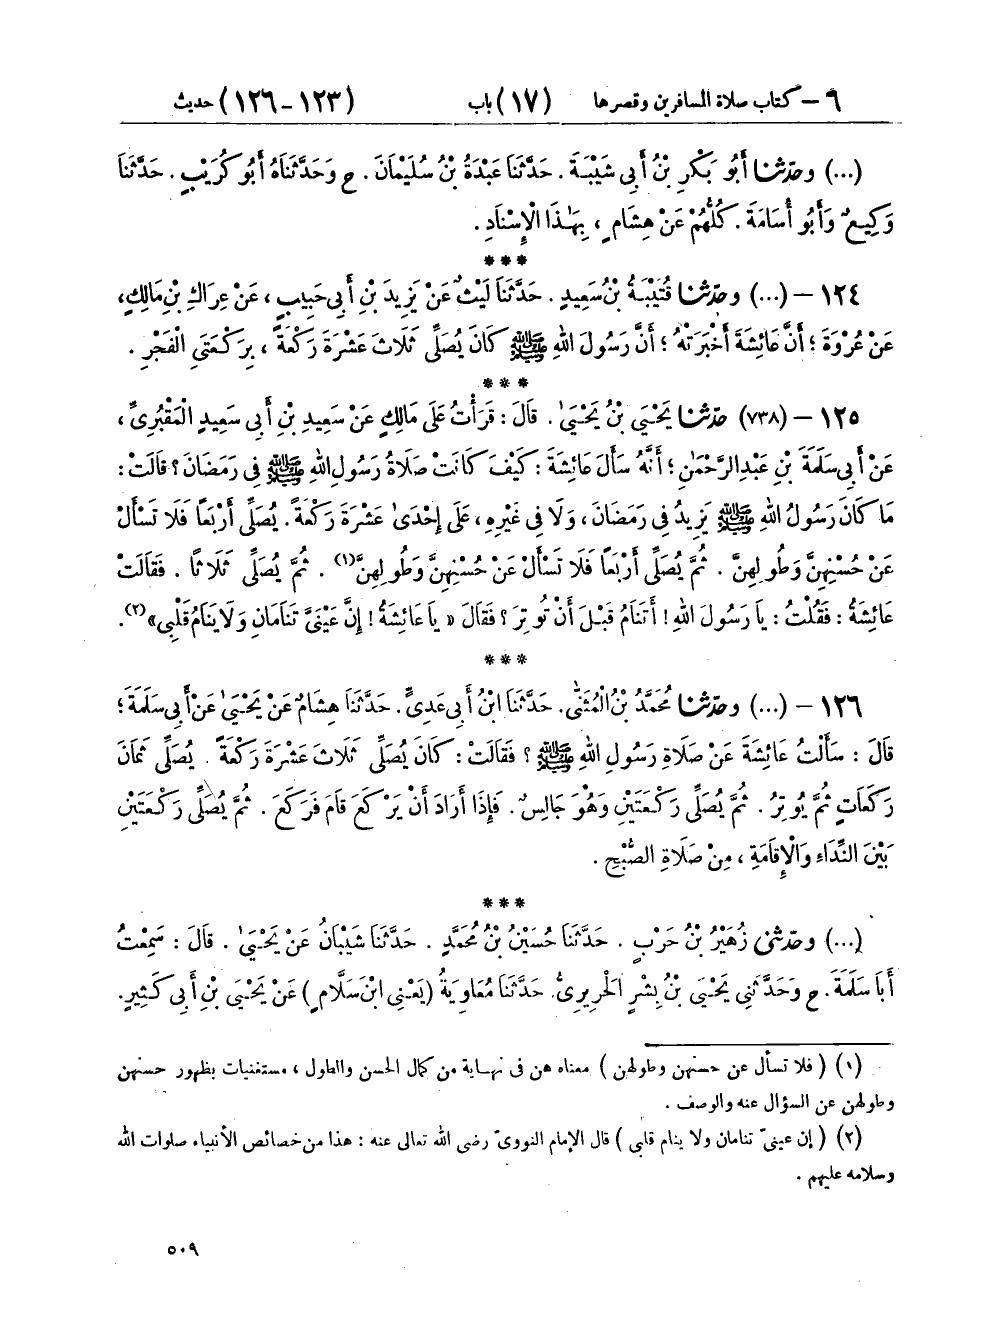 ٦ – كتاب صلاة المسافرين وقصرها (١٧) باب (١٢٣–١٢٦) حديث
(...) وحَدَّثَنَا أَبُو بَكْرِ بْنُ أَبِي شَيْبَةَ. حَدَّثَنَا عَبْدَةُ بْنُ سُلَيْمَانَ. ح وَحَدَّثَنَاهُ أَبُو كُرَيْبٍ. حَدَّثَنَا
وَكِيعٌ وَأَبُو أُسَامَةَ. كُلُّهُمْ عَنْ هِشَامٍ، بِهَذَا الْإِسْنَادِ.
***
١٢٤ – (...) وحَدَّثَنَا قُتَيْبَةُ بْنُ سَعِيدٍ. حَدَّثَنَا لَيْثٌ عَنْ يَزِيدَ بْنِ أَبِي حَبِيبٍ، عَنْ عِرَاكِ بْنِ مَالِكٍ،
عَنْ عُرْوَةَ؛ أَنَّ عَائِشَةَ أَخْبَرَتْهُ؛ أَنَّ رَسُولَ اللهِ ﷺ كَانَ يُصَلِّي ثَلَاثَ عَشْرَةَ رَكْعَةً، بِرَكْعَتَيِ الْفَجْرِ.
***
١٢٥ – (٧٣٨) حَدَّثَنَا يَحْيَى بْنُ يَحْيَى. قَالَ: قَرَأْتُ عَلَى مَالِكٍ عَنْ سَعِيدِ بْنِ أَبِي سَعِيدٍ الْمَقْبُرِيِّ،
عَنْ أَبِي سَلَمَةَ بْنِ عَبْدِ الرَّحْمَنِ؛ أَنَّهُ سَأَلَ عَائِشَةَ: كَيْفَ كَانَتْ صَلَاةُ رَسُولِ اللهِ ﷺ فِي رَمَضَانَ؟ قَالَتْ:
مَا كَانَ رَسُولُ اللهِ ﷺ يَزِيدُ فِي رَمَضَانَ، وَلَا فِي غَيْرِهِ، عَلَى إِحْدَى عَشْرَةَ رَكْعَةً. يُصَلِّي أَرْبَعًا فَلَا تَسْأَلْ
عَنْ حُسْنِهِنَّ وَطُولِهِنَّ. ثُمَّ يُصَلِّي أَرْبَعًا فَلَا تَسْأَلْ عَنْ حُسْنِهِنَّ وَطُولِهِنَّ(١). ثُمَّ يُصَلِّي ثَلَاثًا. فَقَالَتْ
عَائِشَةُ: فَقُلْتُ: يَا رَسُولَ اللهِ! أَتَنَامُ قَبْلَ أَنْ تُوتِرَ؟ فَقَالَ «يَا عَائِشَةُ! إِنَّ عَيْنَيَّ تَنَامَانِ وَلَا يَنَامُ قَلْبِي»(٢).
***
١٢٦ – (...) وحَدَّثَنَا مُحَمَّدُ بْنُ الْمُثَنَّى. حَدَّثَنَا ابْنُ أَبِي عَدِيٍّ. حَدَّثَنَا هِشَامٌ عَنْ يَحْيَى عَنْ أَبِي سَلَمَةَ؛
قَالَ: سَأَلْتُ عَائِشَةَ عَنْ صَلَاةِ رَسُولِ اللهِ ﷺ؟ فَقَالَتْ: كَانَ يُصَلِّي ثَلَاثَ عَشْرَةَ رَكْعَةً. يُصَلِّي ثَمَانَ
رَكَعَاتٍ ثُمَّ يُوتِرُ. ثُمَّ يُصَلِّي رَكْعَتَيْنِ وَهُوَ جَالِسٌ. فَإِذَا أَرَادَ أَنْ يَرْكَعَ قَامَ فَرَكَعَ. ثُمَّ يُصَلِّي رَكْعَتَيْنِ
بَيْنَ النِّدَاءِ وَالْإِقَامَةِ، مِنْ صَلَاةِ الصُّبْحِ.
***
(...) وحَدَّثَنِي زُهَيْرُ بْنُ حَرْبٍ. حَدَّثَنَا حُسَيْنُ بْنُ مُحَمَّدٍ. حَدَّثَنَا شَيْبَانُ عَنْ يَحْيَى. قَالَ: سَمِعْتُ
أَبَا سَلَمَةَ. ح وَحَدَّثَنِي يَحْيَى بْنُ بِشْرٍ الْحَرِيرِيُّ. حَدَّثَنَا مُعَاوِيَةُ (يَعْنِي ابْنَ سَلَّامٍ) عَنْ يَحْيَى بْنِ أَبِي كَثِيرٍ.
(١) (فلا تسأل عن حسنهن وطولهن) معناه هن في نهاية من كمال الحسن والطول، مستغنيات بظهور حسنهن
وطولهن عن السؤال عنه والوصف.
(٢) (إن عينيّ تنامان ولا ينام قلبي) قال الإمام النووي رضي الله تعالى عنه: هذا من خصائص الأنبياء صلوات الله
وسلامه عليهم.
٥٠٩